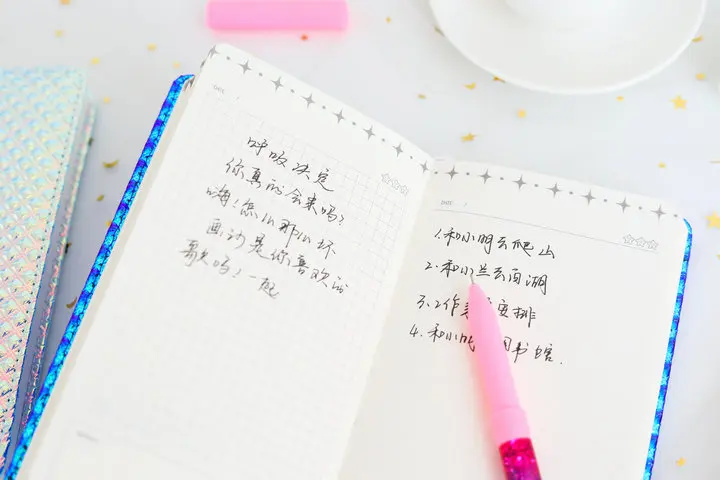 DATE
呼吸决定
你真的会来吗?
嗨!怎么那么坏
画沙是你喜欢的
歌吗,一起
DATE /
1.和小明去爬山
2.和小兰去西湖
3.工作 安排
4.和小 图书馆.